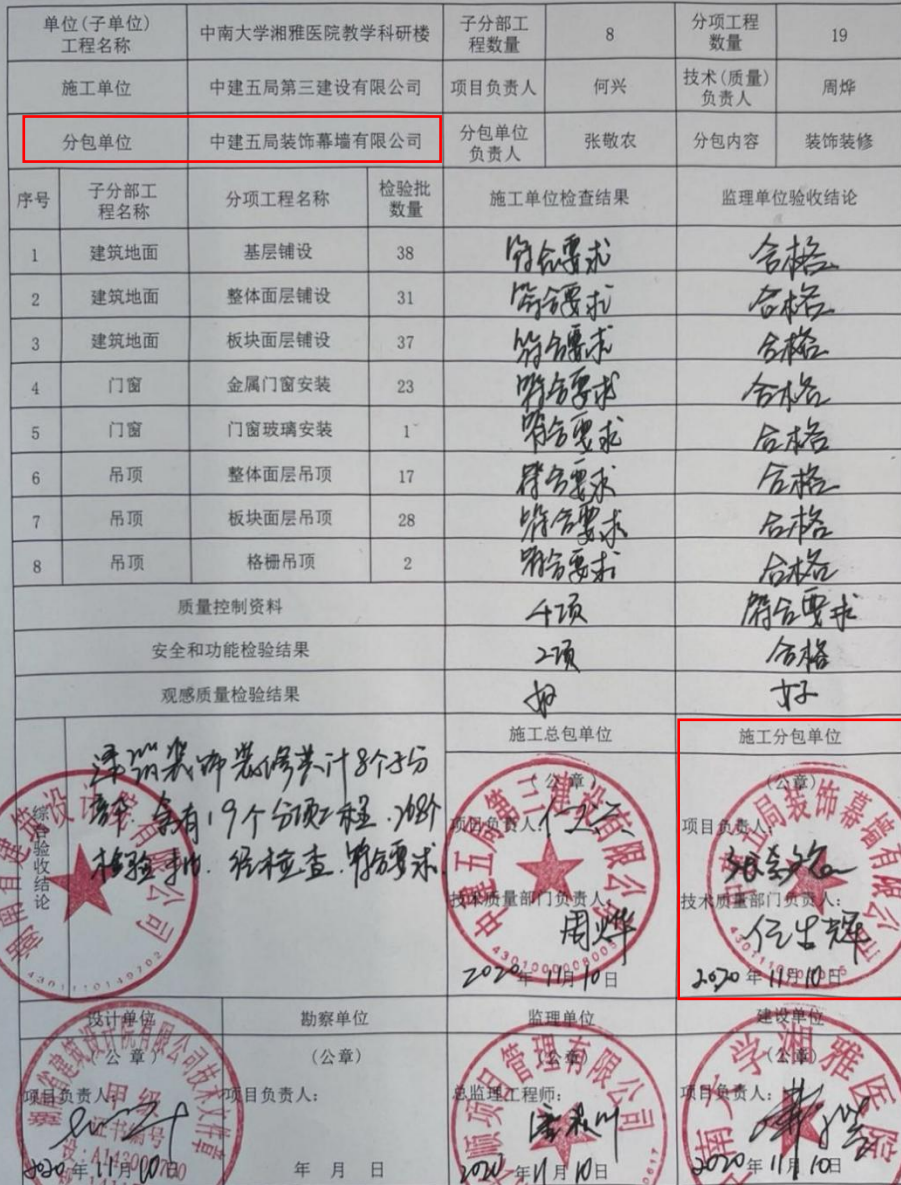 单位(子单位)工程名称 中南大学湘雅医院教学科研楼 子分部工程数量 8 分项工程数量 19
施工单位 中建五局第三建设有限公司 项目负责人 何兴 技术(质量)负责人 周烨
分包单位 中建五局装饰幕墙有限公司 分包单位负责人 张敬农 分包内容 装饰装修
序号 子分部工程名称 分项工程名称 检验批数量 施工单位检查结果 监理单位验收结论
1 建筑地面 基层铺设 38 符合要求 合格
2 建筑地面 整体面层铺设 31 符合要求 合格
3 建筑地面 板块面层铺设 37 符合要求 合格
4 门窗 金属门窗安装 23 符合要求 合格
5 门窗 门窗玻璃安装 1 符合要求 合格
6 吊顶 整体面层吊顶 17 符合要求 合格
7 吊顶 板块面层吊顶 28 符合要求 合格
8 吊顶 格栅吊顶 2 符合要求 合格
质量控制资料 4项 符合要求
安全和功能检验结果 2项 合格
观感质量检验结果 好 好
综合验收结论
装饰装修共计8个子分
部 含有19个分项工程.268个
检验批.经检查.符合要求
施工总包单位
(公章)
项目负责人:
技术质量部门负责人:
周烨
2020年11月10日
中建五局第三建设有限公司
施工分包单位
(公章)
项目负责人:
技术质量部门负责人:
任生辉
2020年11月10日
中建五局装饰幕墙有限公司
设计单位
(公章)
项目负责人:
2020年11月10日
甲级
证书编号
勘察单位
(公章)
项目负责人:
年 月 日
监理单位
(公章)
总监理工程师:
2020年11月10日
项目管理有限公司
建设单位
(公章)
项目负责人:
2020年11月10日
南大学湘雅医院